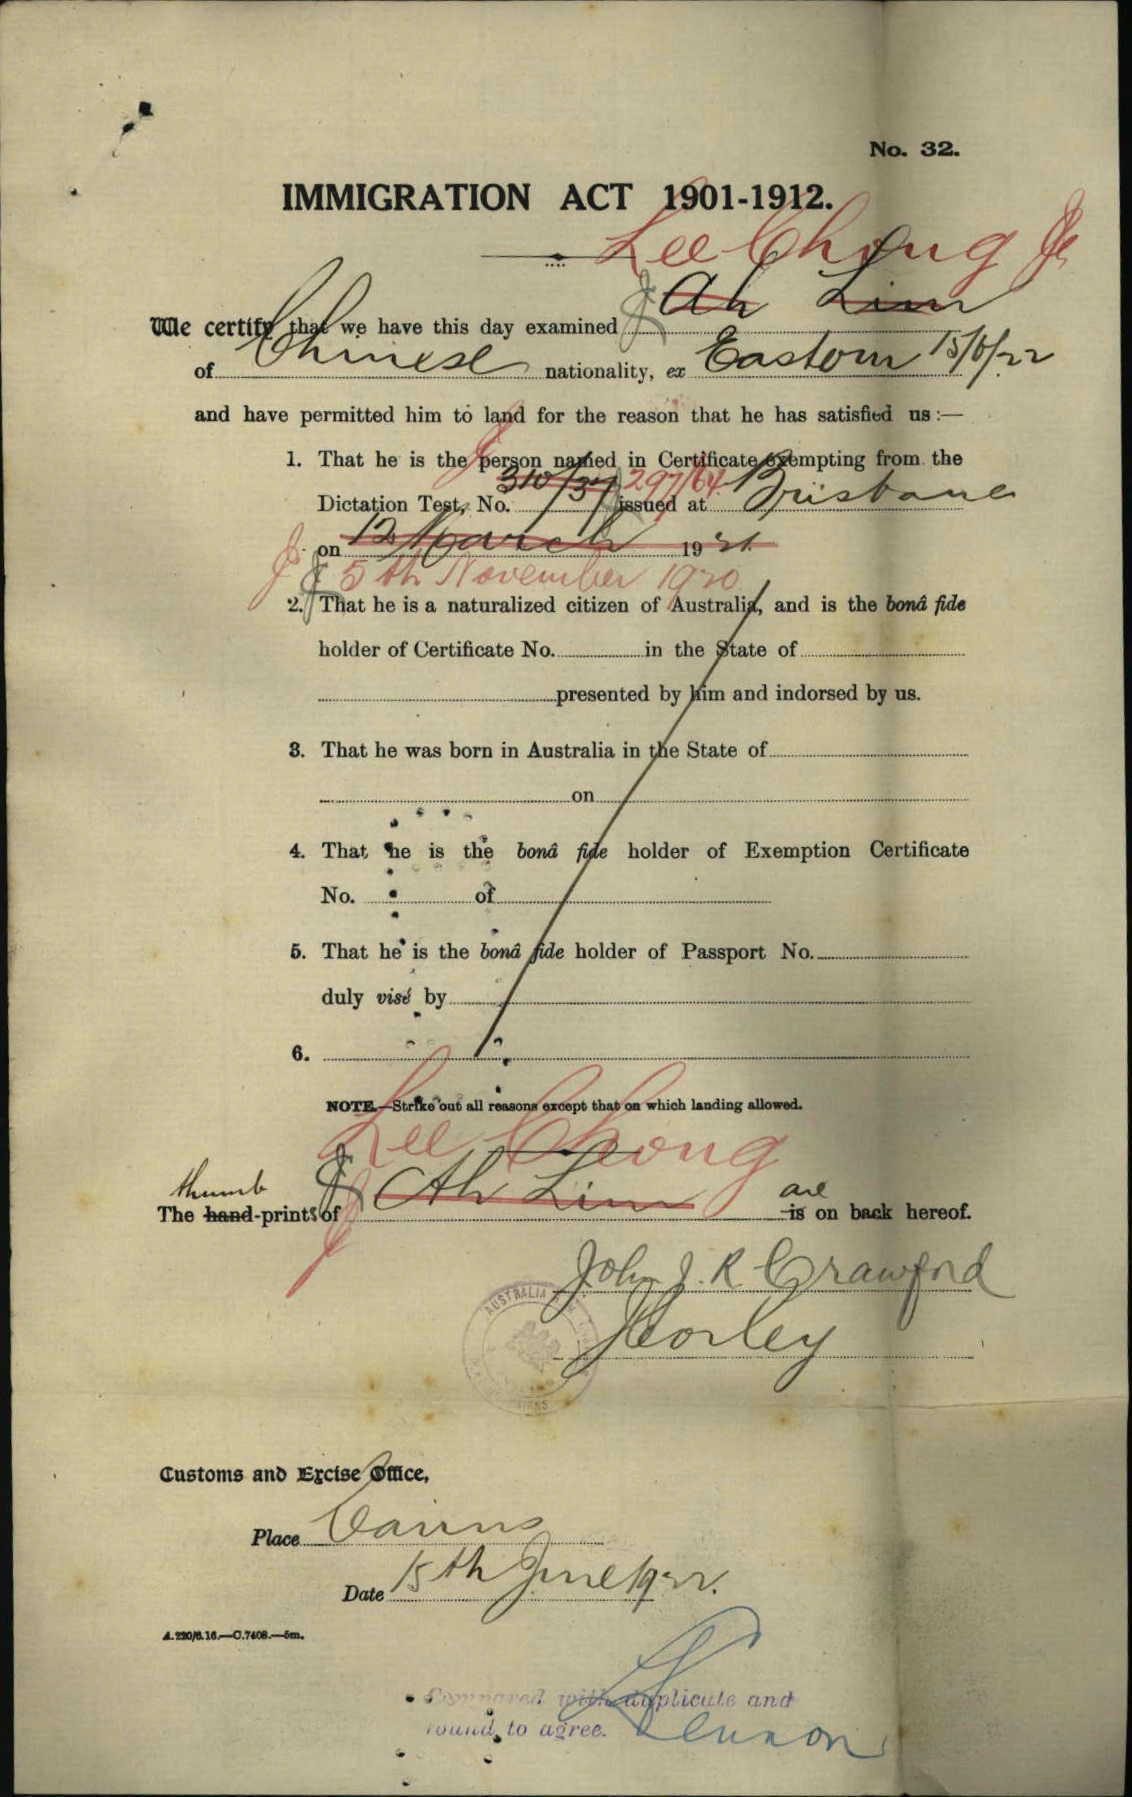 No. 32.
IMMIGRATION ACT 1901-1912.
Lee Chong
Ah Lim
We certify that we have this day examined
of Chinese nationality, ex Eastern 15/6/22
and have permitted him to land for the reason that he has satisfied us :—
1. That he is the person named in Certificate exempting from the
310/37 297/64
Dictation Test, No. issued at Brisbane
on 12 March 1921
5th November 1920
2. That he is a naturalized citizen of Australia, and is the bonâ fide
holder of Certificate No. in the State of
presented by him and indorsed by us.
3. That he was born in Australia in the State of
on
4. That he is the bonâ fide holder of Exemption Certificate
No. of
5. That he is the bonâ fide holder of Passport No.
duly visé by
6.
NOTE.—Strike out all reasons except that on which landing allowed.
Lee Chong
thumb Ah Lim are
The hand-prints of is on back hereof.
John J. R. Crawford
AUSTRALIA
Customs and Excise Office,
Place Cairns
Date 15th June 1922.
A.220/6.16.—C.7408.—5m.
Compared with duplicate and
found to agree. Lennon